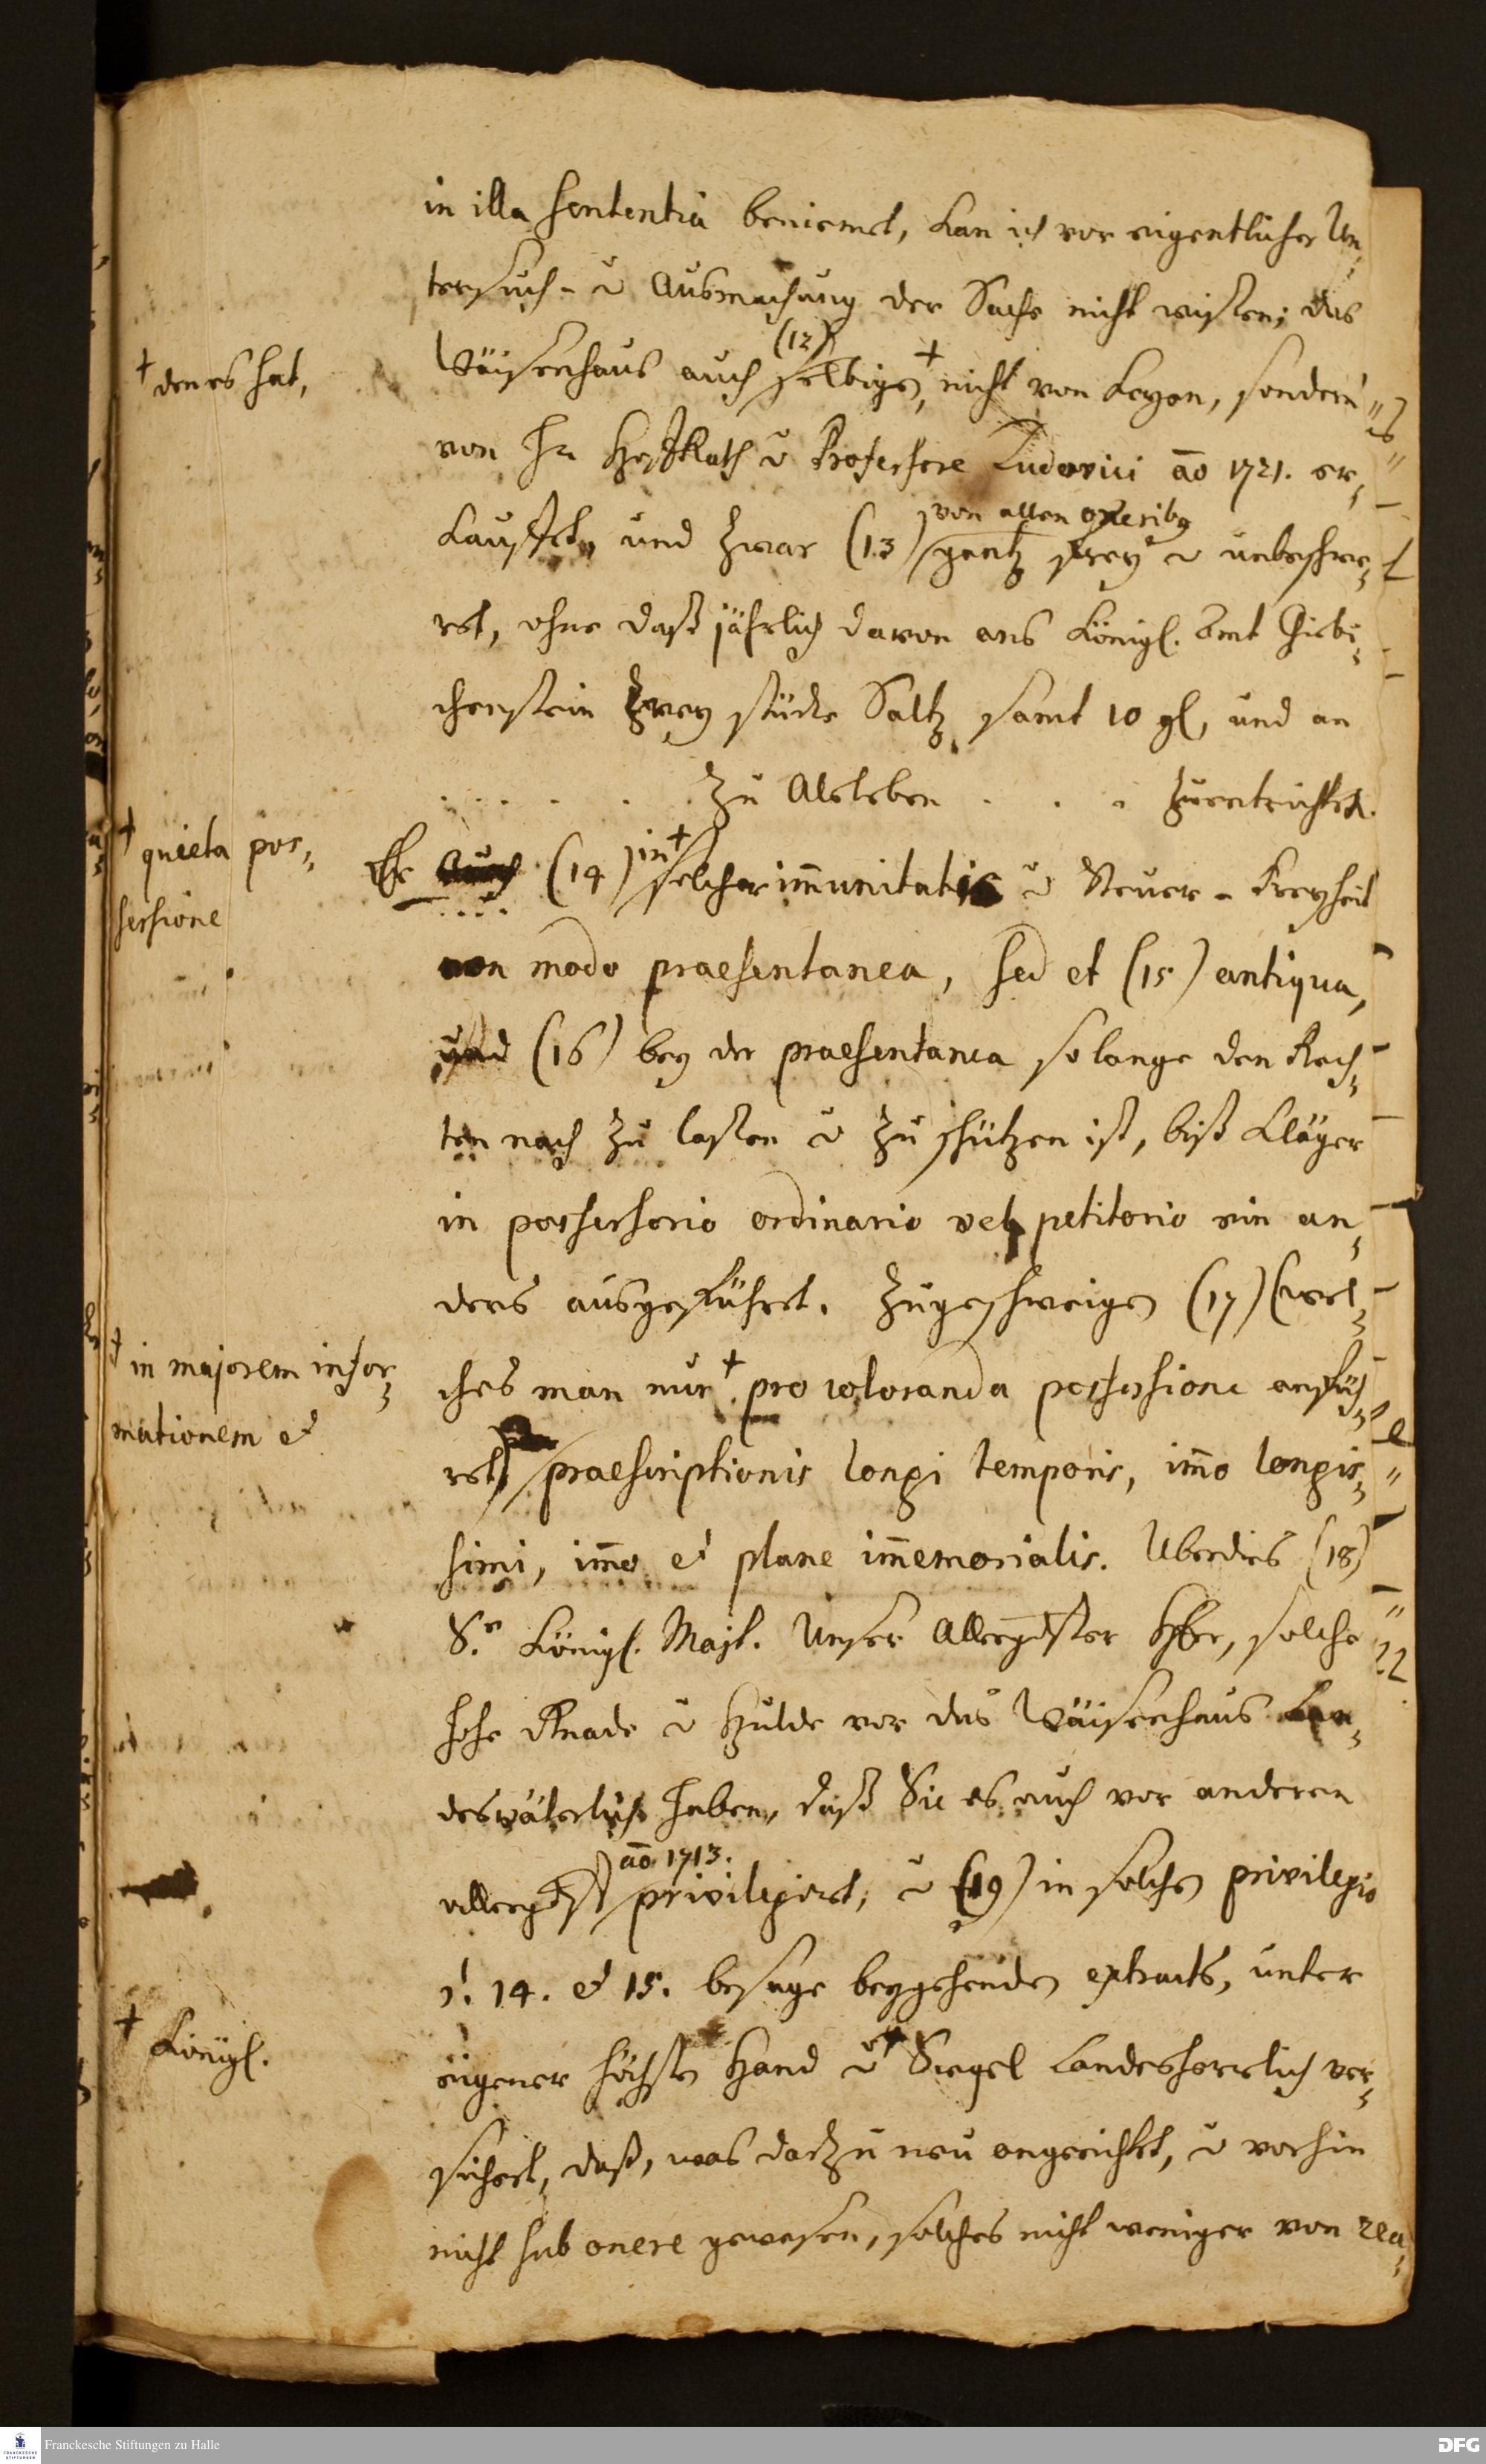 in illa sententia beniemet, kan ich vor eigentlicher Un-
tersuch- u Ausmachung der Sache nicht wissen; das
(12)
Wäisenhaus auch selbige,+ nicht von Keyen, sondern
+ denes hat,
von Hn HoffRath u Professore Ludovici aō 1721. er-
von allen
kauffet, und zwar (13) gantz frey u unbeschwe-
ret, ohne daß jährlich davon ans Königl. Amt Giebi-
chenstein Zwey stücke Saltz samt 10 gl, und an
. . . . . zu Alsleben . . . zuentrichten.
+ quieta pos-
sessione
in +
(14) solcher immunitatis u Steuer-Freyheit
non modo praesentanea, sed et (15) antiqua,
und (16) bey der praesentanea so lange den Rech-
ten nach zu lassen u zu schützen ist, biß Kläger
in possessorio ordinario vel petitorio ein an-
ders ausgeführet. Zugeschweigen (17) (wel-
+ in majorem infor-
mationem et
ches man nur + pro coloranda possessione anfüh-
ret) praescriptionis longi temporis, imo longis-
simi, imo et plane immemorialis. Uberdies (18)
S.e Königl. Majt. Unser Allergdster HErr, solche
hohe Gnade u Hulde vor das Wäisenhaus Lan-
desväterlich haben, daß Sie es auch vor anderen
aō 1713.
allergdst privilegiret, u (19) in solchen privilegio
§. 14. et 15. besage beygehenden extracts, unter
+ Königl.
eigener höchsten Hand u + Siegel Landesherrlich ver-
sichert, daß, was darzu neu angerichtet, u vorhin
nicht sub onere gewesen, solches nicht weniger von rea-
Franckesche Stiftungen zu Halle
FRANCKESCHE STIFTUNGEN
DFG